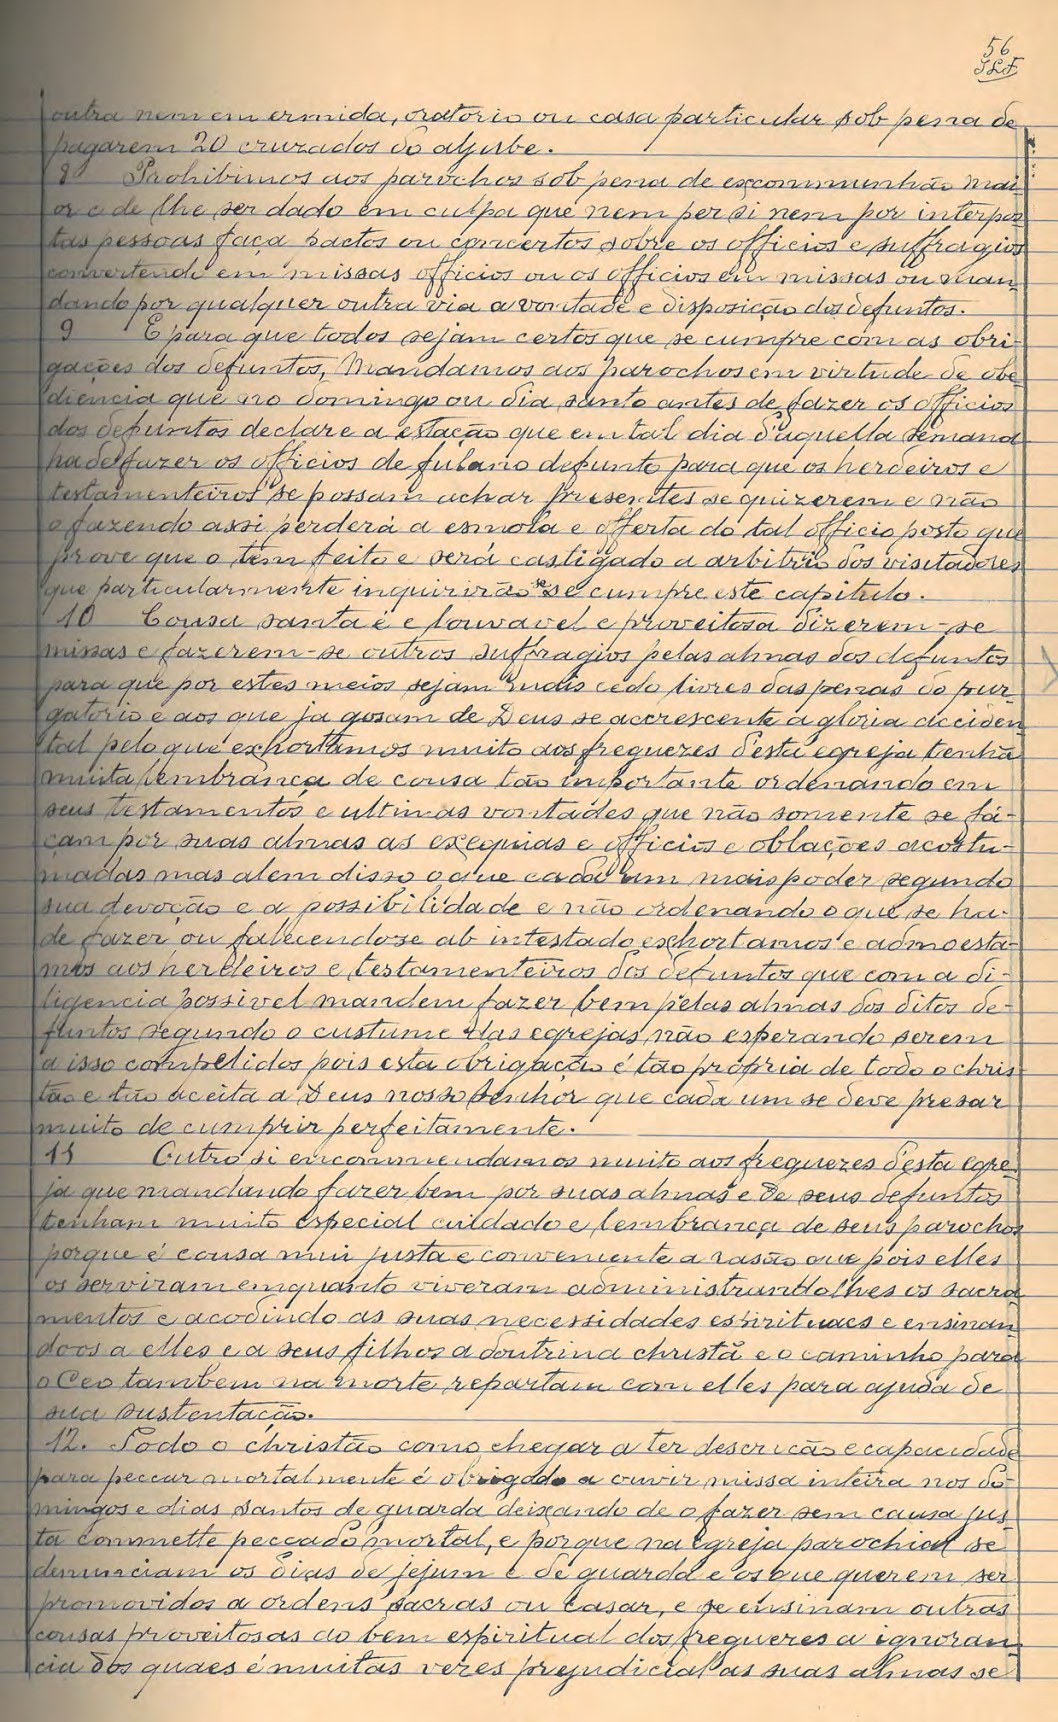 56
outra nem em ermida, oratorio ou casa particular sob pena de
pagarem 20 cruzados do aljube.
8 Prohibimos aos parochos sob pena de excommunhão mai-
or e de lhe ser dado em culpa que nem per si nem por interpos
tas pessoas faça pactos ou concertos sobre os officios e suffragios
convertendo em missas officios ou os officios em missas ou man-
dando por qualquer outra via a vontade e disposição dos defuntos.
9 E para que todos sejam certos que se cumpre com as obri-
gações dos defuntos, Mandamos aos parochos em virtude de obe
diencia que no domingo ou dia santo antes de fazer os officios
dos defuntos declare a estação que em tal dia d'aquella semana
ha de fazer os officios de fulano defunto para que os herdeiros e
testamenteiros se possam achar presentes se quizerem e não
o fazendo assi perderá a esmola e offerta do tal officio posto que
prove que o tem feito e será castigado a arbitrio dos visitadores
que particularmente inquirirão se se cumpre este capitulo.
10 Cousa santa é e louvavel e proveitosa dizerem-se
missas e fazerem-se outros suffragios pelas almas dos defuntos
para que por estes meios sejam mais cedo livres das penas do pur-
gatorio e aos que ja gosam de Deus se accrescente a gloria acciden
tal pelo que exhortamos muito aos freguezes d'esta egreja tenhã
muita lembrança de cousa tão importante ordenando em
seus testamentos e ultimas vontades que não somente se fa-
çam por suas almas as exequias e officios e oblações acostu-
madas mas alem disso o que cada um mais poder segundo
sua devoção e a possibilidade e não ordenando o que se ha-
de fazer ou falecendo-se ab intestado exhortamos e admoesta-
mos aos herdeiros e testamenteiros dos defuntos que com a di-
ligencia possivel mandem fazer bem pelas almas dos ditos de-
funtos segundo o custume das egrejas não esperando serem
a isso compelidos pois esta obrigação é tão propria de todo o chris-
tão e tão aceita a Deus nosso Senhor que cada um se deve presar
muito de cumprir perfeitamente.
11 Outro si encommendamos muito aos freguezes d'esta egre-
ja que mandando fazer bem por suas almas e de seus defuntos
tenham muito especial cuidado e lembrança de seus parochos
porque é cousa mui justa e conveniente a rasão que pois elles
os serviram emquanto viveram administrando lhes os sacra
mentos e acodindo as suas necessidades espirituaes e ensinan-
doos a elles e a seus filhos a doutrina christã e o caminho para
o Ceo tambem na morte repartam com elles para ajuda de
sua sustentação.
12. Todo o christão como chegar a ter descrição e capacidade
para peccar mortalmente é obrigado a ouvir missa inteira nos do-
mingos e dias santos de guarda deixando de o fazer sem causa jus-
ta commette peccado mortal, e porque na egreja parochial se
denunciam os dias de jejum e de guarda e os que querem ser
promovidos a ordens sacras ou casar, e se ensinam outras
cousas proveitosas ao bem espiritual dos freguezes a ignoran-
cia dos quaes é muitas vezes prejudicial as suas almas se